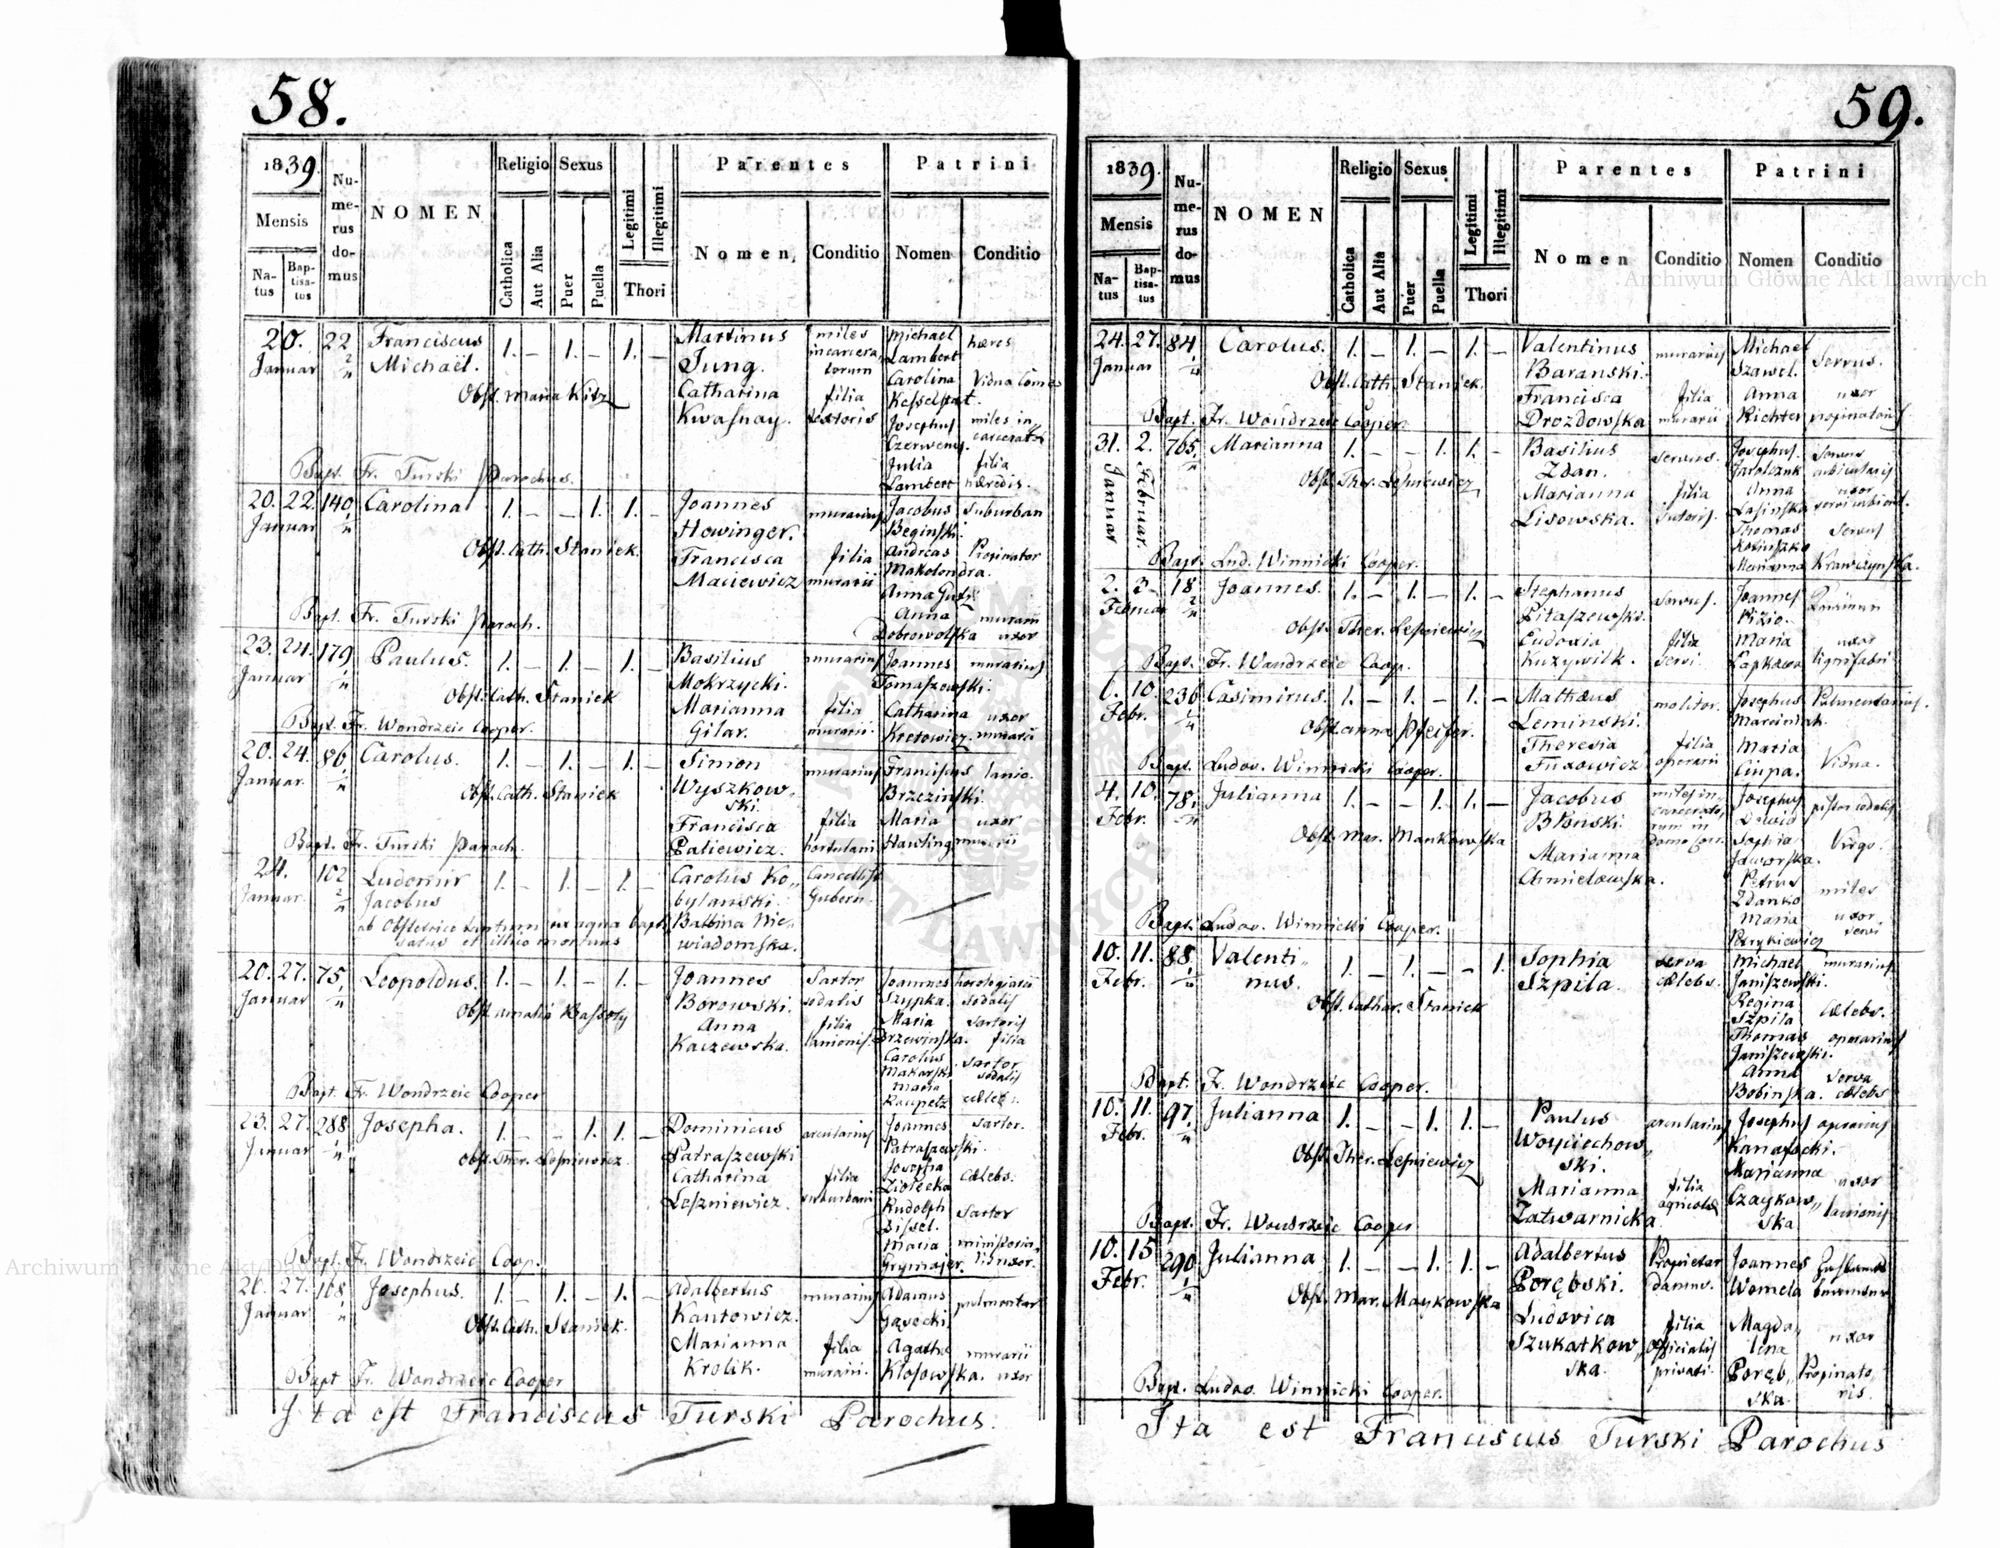 58.
1839.
Mensis
Na-
tus
Bap-
tisa-
tus
Nu-
me-
rus
do-
mus
NOMEN
Religio
Catholica
Aut Alia
Sexus
Puer
Puella
Legitimi
Illegitimi
Thori
Parentes
Nomen,
Conditio
Patrini
Nomen
Conditio
20. 22 Franciscus 1. – 1. – 1. – Martinus miles Michael hæres
Januar Michaël. Jung. Lambert
Obst. Maria Kitz Catharina filia Carolina Vidua Comes
Kwasnay. textoris
Josephus miles in
Czerweny.
Julia filia
Bapt. Fr. Turski Parochus. Lambert hæredis.
20. 22. 140 Carolina 1. – – 1. 1. – Joannes murarius Jacobus suburban
Januar Howinger. Beginski.
Obst. Cath. Staniek. Francisca filia Andreas Propinator
Maciewicz murarii Makolondra.
Anna
Anna murarii
Bapt. Fr. Turski Paroch. Dobrowolska uxor
23. 24. 179 Paulus. 1. – 1. – 1. – Basilius murarius Joannes murarius
Januar Mokrzycki. Tomaszewski.
Obst. Cath. Staniek Marianna filia Catharina uxor
Bapt. Fr. Wondrzeic Cooper. Gilar. murarii. Kretowicz. murarii
20. 24. 86 Carolus. 1. – 1. – 1. – Simon murarius Franciscus lanio.
Januar Wyszkow- Brzezinski.
Obst. Cath. Staniek ski.
Francisca filia Maria uxor
Bapt. Fr. Turski Paroch. Paliewicz. hortulani Hawling murarii
24. 102 Ludomir 1. – 1. – 1. – Carolus Ko- Cancellista
Januar Jacobus bylanski. Gubern.
ab Obstetrice tantum ex aqua bapti Balbina Nie-
satus et illico mortuus wiadomska.
20. 27. 75 Leopoldus. 1. – 1. – 1. – Joannes Sartor Joannes horologiarii
Januar Borowski. sodalis Szypka. sodalis
Obst. Amalia Bassoty Anna filia Maria sartoris
Kaczewska. lanionis. Brzewinska. filia
Carolus sartor
Makarski sodalis
Maria
Bapt. Fr. Wondrzeic Cooper Kaupetz cælebs.
23. 27. 288 Josepha. 1. – – 1. 1. – Dominicus arcularius Joannes sartor.
Januar Patraszewski Patraszewski.
Obst. Ther. Lesniewicz Catharina filia Josepha cælebs.
Leszniewicz. suburbani Ziolecka
Rudolph sartor
Bissel.
Maria
Bapt. Fr. Wondrzeic Coop. Grymajer.
26. 27. 168 Josephus. 1. – 1. – 1. – Adalbertus murarius Adamus
Januar Kantowicz. Gąsecki
Obst. Cath. Staniek. Marianna filia Agatha murarii
Bapt Fr. Wondrzeic Cooper Krolik. murarii. Klosowska. uxor
Ita est Franciscus Turski Parochus.
59.
1839.
Mensis
Na-
tus
Bap-
tisa-
tus
Nu-
me-
rus
do-
mus
NOMEN
Religio
Catholica
Aut Alia
Sexus
Puer
Puella
Legitimi
Illegitimi
Thori
Parentes
Nomen
Conditio
Patrini
Nomen
Conditio
24. 27. 84 Carolus. 1. – 1. – 1. – Valentinus murarius Michael Servus.
Januar Baranski. Szawel.
Obst. Cath. Staniek. Francisca filia Anna uxor
Bapt. Fr. Wondrzeic Cooper. Drozdowska murarii Richter propinatoris
31. 2. 765 Marianna 1. – – 1. 1. – Basilius servus. Josephus Servus
Januar Februar. Zdan. Jarolczuk cubicularis
Obst. Ther. Lesniewicz Marianna filia Anna uxor
Lisowska. sutoris. Lasinska servi cubicul.
Thomas servus
Bapt. Lud. Winnicki Cooper. Marianna Krawczynska.
2. 3. 18 Joannes. 1. – 1. – 1. – Stephanus servus. Joannes
Februar Pitaszewski. Kizio.
Obst. Ther. Lesniewicz Eudoxia filia Maria uxor
Bapt. Fr. Wondrzeic Coop. Kuzywilk. servi. Lapkowa lignifabri
6. 10. 236 Casimirus. 1. – 1. – 1. – Mathæus molitor. Josephus Pulmentarius.
Febr. Leminski. Marciniak.
Obst. Anna Pfeifer. Theresia filia Maria Vidua.
Bapt. Ludov. Winnicki Cooper. Fuxowicz operarii Ciupa.
4. 10. 78. Julianna 1. – – 1. 1. – Jacobus miles in Josephus pistor sodalis
Febr. Błonski. Dawid
Obst. Mar. Mankowska Marianna Sophia Virgo.
Chmielowska. Jaworska.
Petrus miles
Zdanko
Maria uxor
Bapt. Ludov. Winnicki Cooper. Petrykiewicz servi
10. 11. 88. Valenti- 1. – 1. – – 1. Sophia serva Michael murarius
Febr. nus. Szpila. cælebs. Janiszewski.
Obst. Cathar. Staniek Regina cælebs.
Szpila
Thomas operarius
Janiszewski.
Anna serva
Bapt. Fr. Wondrzeic Cooper. Bobinska. cælebs
10. 11. 97. Julianna 1. – – 1. 1. – Paulus arcularius Josephus operarius
Febr. Woyciechow- Kanafocki.
Obst. Ther. Lesniewicz ski. Marianna uxor
Marianna filia Czaykow-
Bapt. Fr. Wondrzeic Cooper Zatwarnicka. agricolæ ska lanionis
10. 15 290 Julianna 1. – – 1. 1. – Adalbertus Proprietar Joannes
Febr. Porębski. domus. Womela
Obst. Mar. Maykowska Ludovica filia Magda- uxor
Szukatkow- officialis lena
ska. privati. Poręb- Propinato-
Bapt. Ludov. Winnicki Cooper. ska. ris.
Ita est Franciscus Turski Parochus
Archiwum Główne Akt Dawnych
Archiwum Główne Akt Dawnych